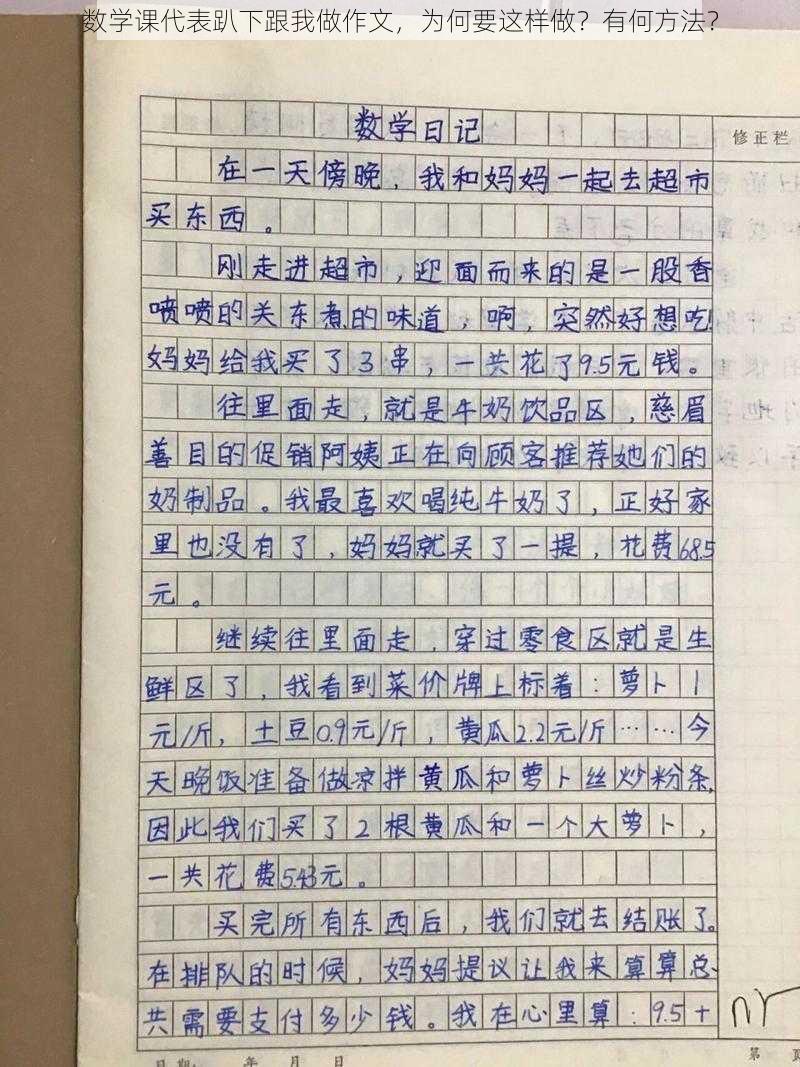 数学课代表趴下跟我做作文，为何要这样做？有何方法？
数学日记
修正栏
在一天傍晚，我和妈妈一起去超市
买东西。
刚走进超市，迎面而来的是一股香
喷喷的关东煮的味道，啊，突然好想吃!
妈妈给我买了3串，一共花了9.5元钱。
往里面走，就是牛奶饮品区，慈眉
善目的促销阿姨正在向顾客推荐她们的
奶制品。我最喜欢喝纯牛奶了，正好家
里也没有了，妈妈就买了一提，花费68.5
元。
继续往里面走，穿过零食区就是生
鲜区了，我看到菜价牌上标着：萝卜1
元/斤，土豆0.9元/斤，黄瓜2.2元/斤……今
天晚饭准备做凉拌黄瓜和萝卜丝炒粉条,
因此我们买了2根黄瓜和一个大萝卜，
一共花费5.43元。
买完所有东西后，我们就去结账了。
在排队的时候，妈妈提议让我来算算总
共需要支付多少钱。我在心里算：9.5+
日期: 年 月 日
第 页